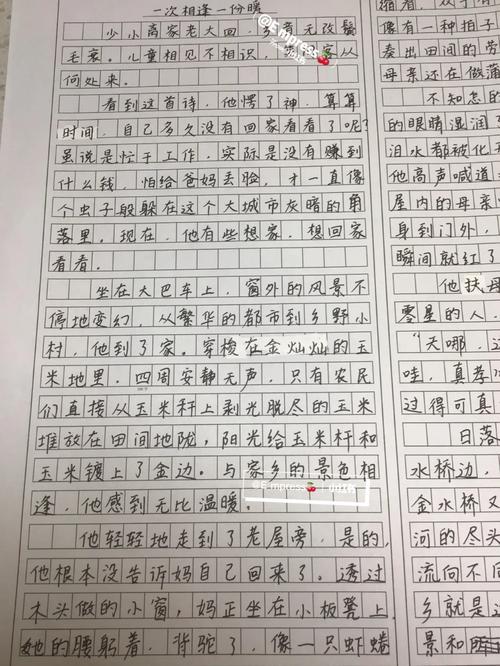 一次相逢一份暖
少小离家老大回，乡音无改鬓
毛衰。儿童相见不相识，笑问客从
何处来。
看到这首诗，他愣了神，算算
时间，自己多久没有回家看看了呢？
虽说是忙于工作，实际是没有赚到
什么钱，怕给爸妈丢脸，才一直像
个虫子般躲在这个大城市灰暗的角
落里。现在，他有些想家，想回家
看看。
坐在大巴车上，窗外的风景不
停地变幻，从繁华的都市到乡野小
村，他到了家。穿梭在金灿灿的玉
米地里，四周安静无声，只有农民
们直接从玉米秆上剥光脱尽的玉米
堆放在田间地陇，阳光给玉米杆和
玉米镀上了金边。与家乡的景色相
逢，他感到无比温暖。
他轻轻地走到了老屋旁，是的，
他根本没告诉妈自己回来了。透过
木头做的小窗，妈正坐在小板凳上，
她的腰躬着，背驼了，像一只虾蜷
缩着，从
像有一种拍子
奏出田间的劳
母亲还在做蒲
不知怎的
的眼睛湿润了
泪水都被化
他高声喊道
屋内的母亲
身到门外，
瞬间就红了
他扶母
零星的人，
“天哪，这
哇，真孝
过得可真
日落
水桥边，
金水桥又
河的尽头
流向不同
乡就是这
景和
@Empress🍒
@Empress🍒